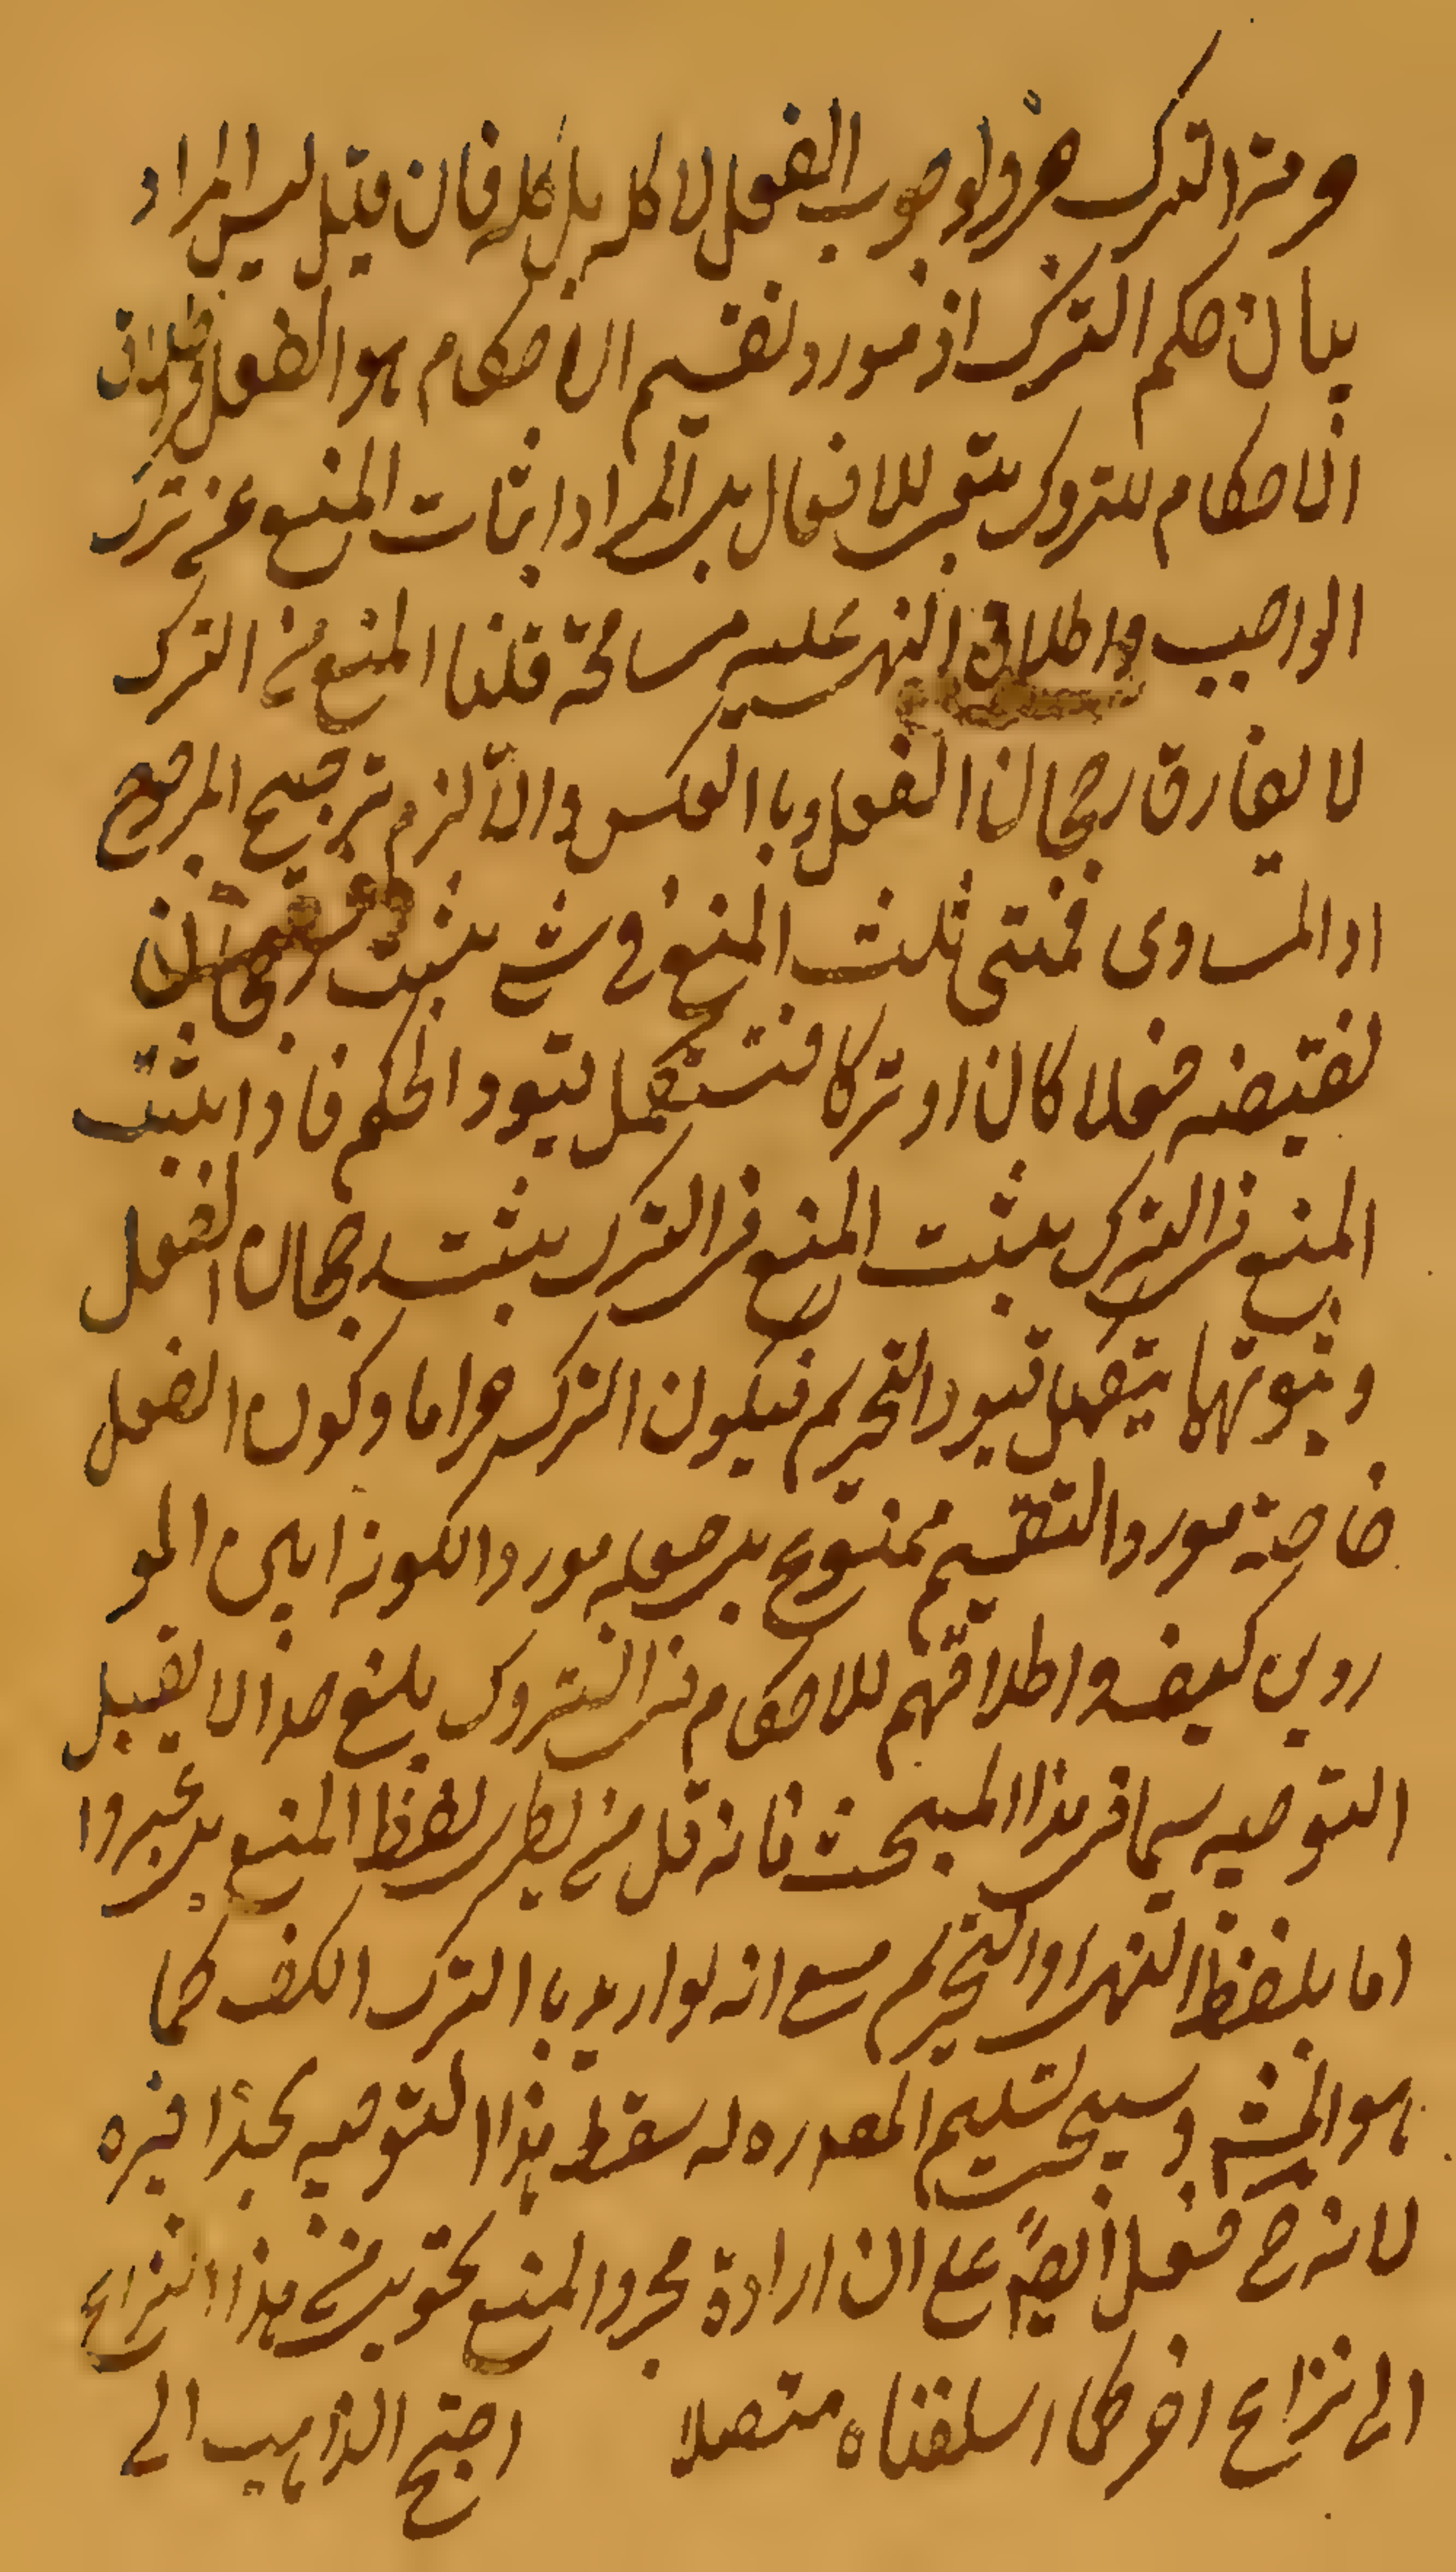 حرمة الترك جزء لوجوب الفعل لا كله بل كله فان قيل ليس المراد
بيان حكم الترك اذ مورد تقسيم الاحكام هو الفعل
الاحكام للتروك بتبع للافعال بل المراد اثبات المنع عن ترك
الواجب واطلاق النهى عليه مسامحة قلنا المنع من الترك
لا يفارق رجحان الفعل وباالعكس والّا لزم ترجيح المرجوح
او المساوى فمتى ثبت المنع فى شئ يثبت رجحان
نقيضه فعلا كان او تركا فتستكمل قيود الحكم فاذا يثبت
المنع من الترك يثبت المنع من الترك يثبت رجحان الفعل
وبثبوتهما يتحصل قيود التحريم فيكون الترك حراما وكون الفعل
خاصة مورد التقسيم ممنوع بل جعله موردا لكونه ابين المو
ردين كيف واطلاقهم للاحكام فى التروك بلغ حدا لا يقبل
التوجيه سيما فى هذا المبحث فانه قل من نظر لفظ المنع بل عبروا
اما بلفظ النهى او التحريم مع انه لو اريد باالترك الكف كما
هو المش وسيجئ تسليم المصدره له سقط هذا التوجيه بحذافيره
لانه ح فعل ايضً على ان ارادة مجرد المنع تحويل من هذا النزاع
الى نزاع اخر كما اسلفناه متصلا احتج الذاهب الى